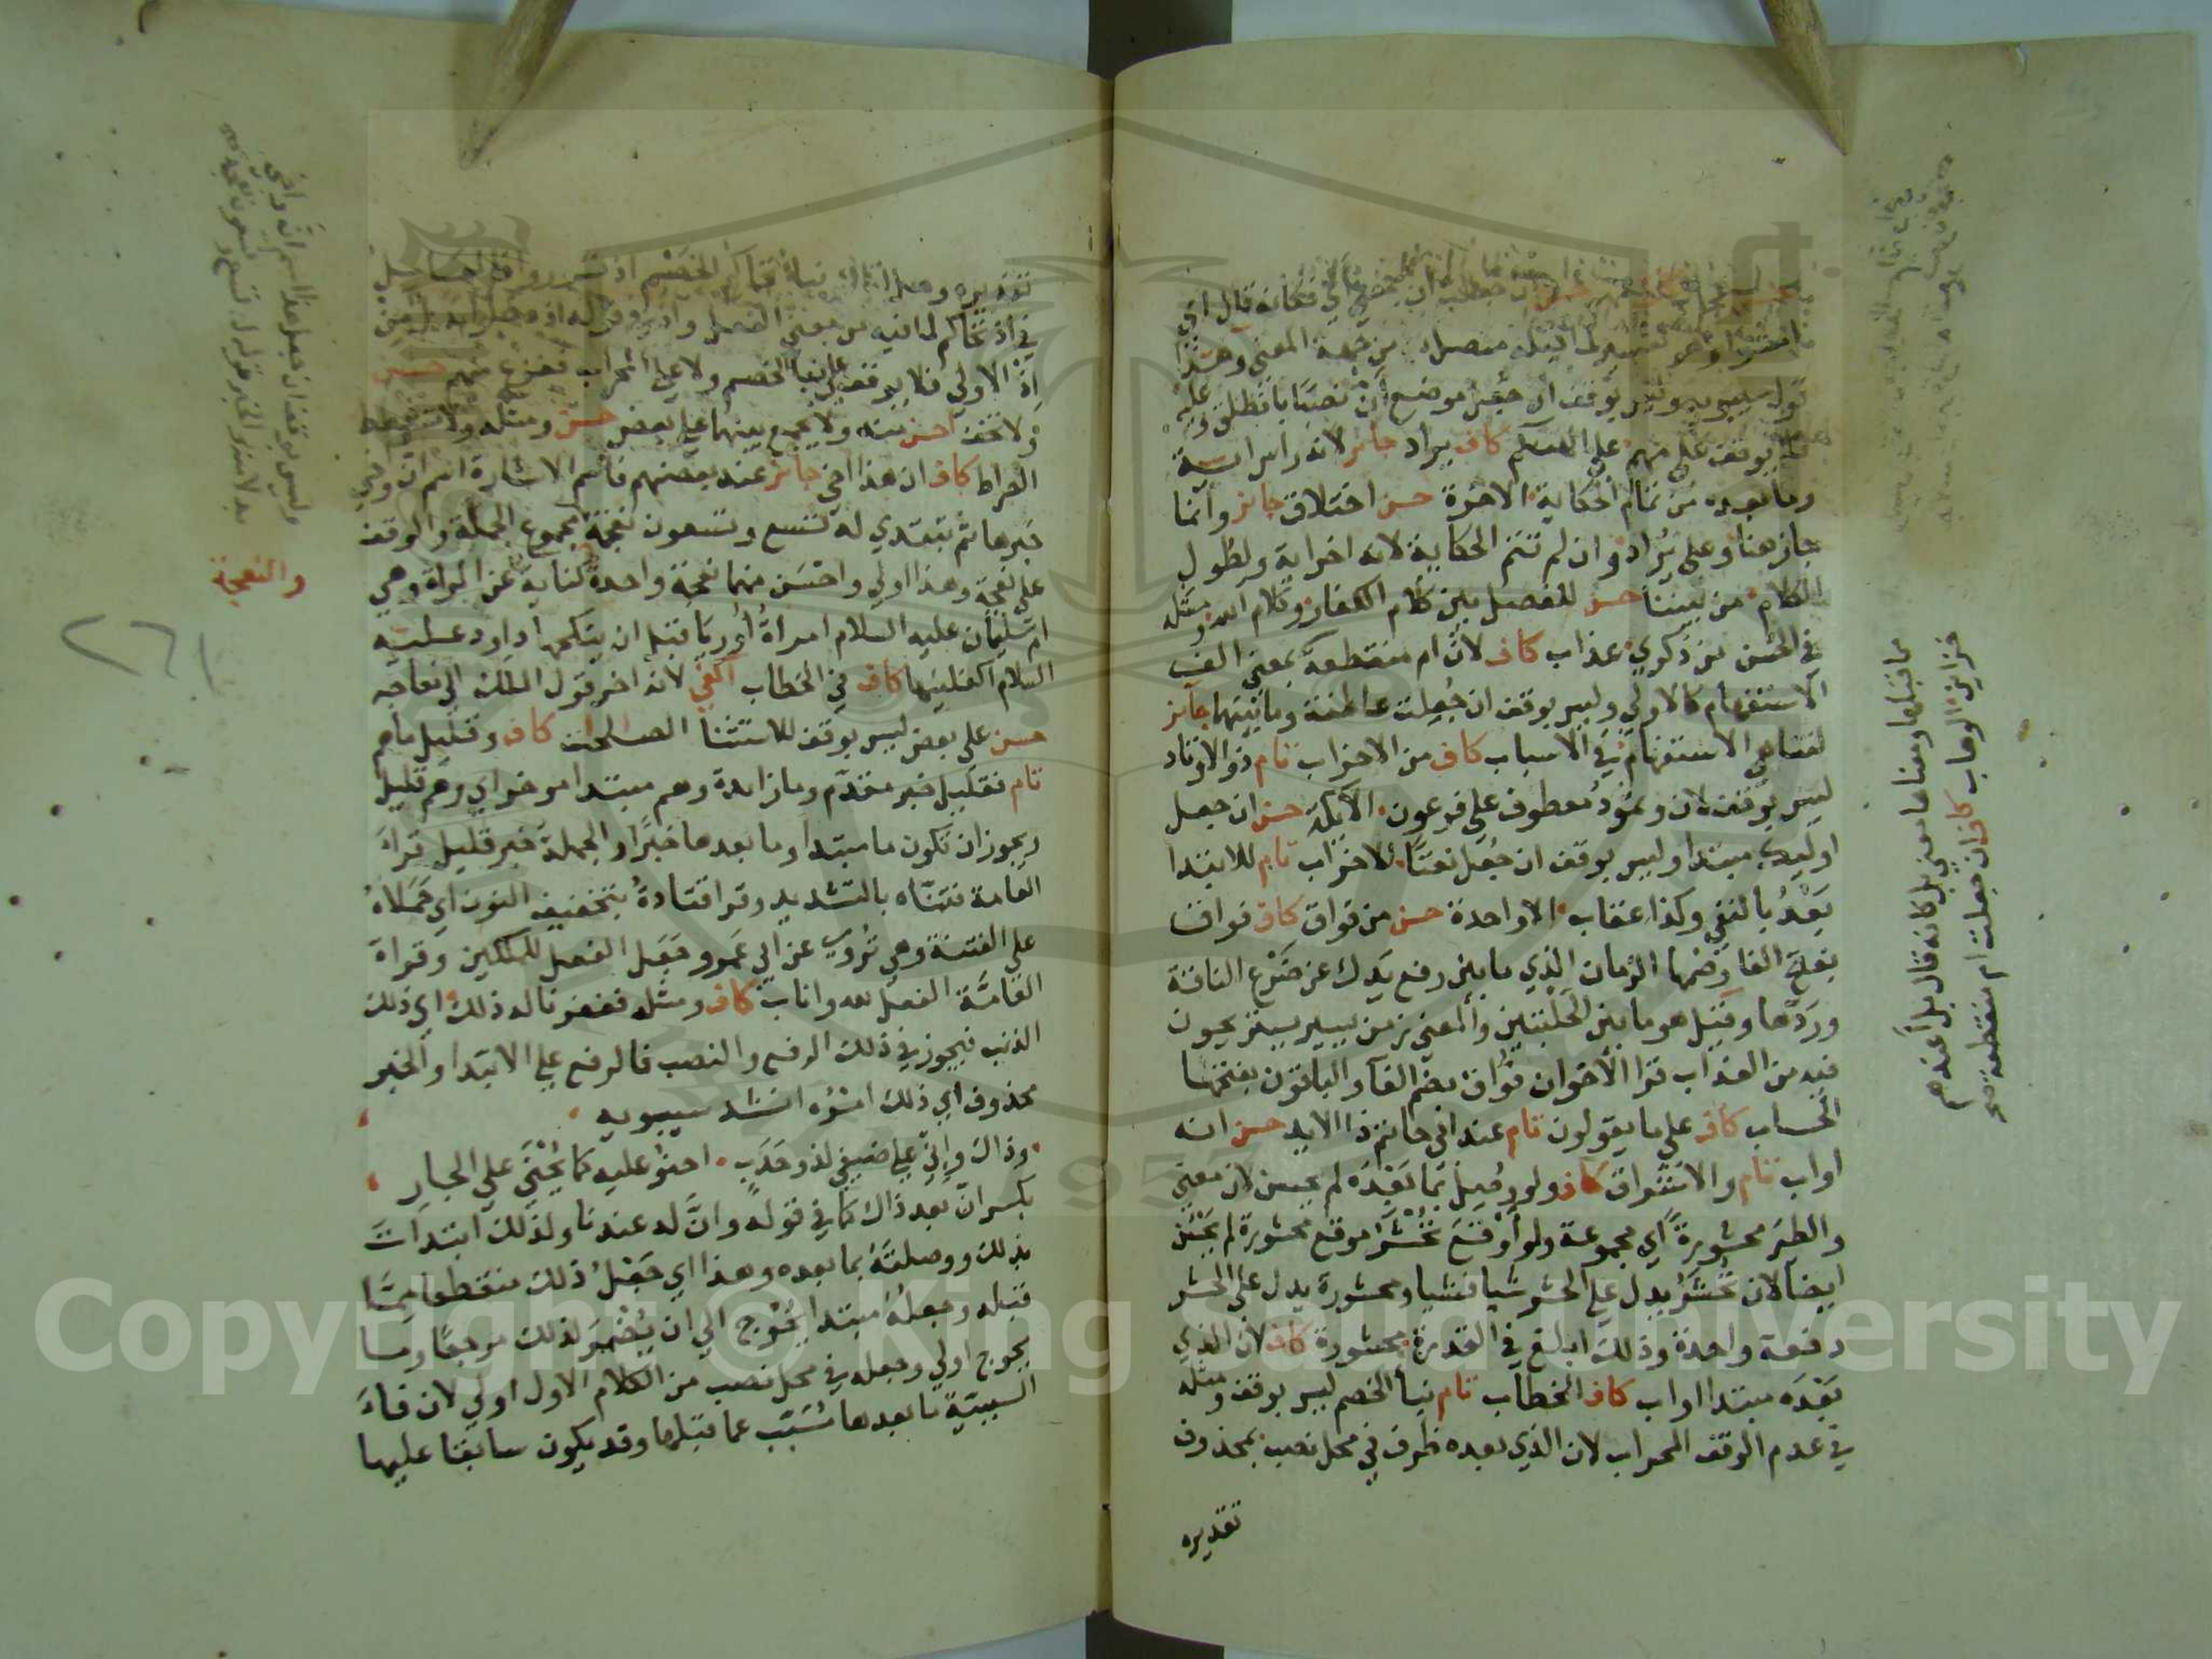 فكانه قال اي
امشوا وهو تفسير لما قبله متصل به من جهة المعنى وهذا
قول سيبويه وليس بوقف ان جعل موضع ان نصبا بانطلق وعليه
فلا يوقف على منهم على الهتكم كاف يراد جائز لانه راس اية
وما بعده من تمام الحكاية الاخرة حسن اختلاق جائز وانما
جاز هنا وعلى يراد وان لم تتم الحكاية لانه اخر اية ولطول
الكلام من بيننا حسن للفصل بين كلام الكفار وكلام الله ومثله
في الحسن من ذكري عذاب كاف لان ام منقطعة بمعنى الف
الاستفهام كالاولى وليس بوقف ان جعلت عاطفة وما بينهما جائز
لتناهي الاستفهام في الاسباب كاف من الاحزاب تام ذو الاوتاد
ليس بوقف لان وثمود معطوف على فرعون الايكة حسن ان جعل
اوليك مبتدا وليس بوقف ان جعل نعتا الاحزاب تام للابتدا
بعد بالنفي وكذا عقاب الا واحدة حسن من فواق كاف فواق
بفتح الفا وضمها الزمان الذي ما بين رفع يدك عن ضرع الناقة
وردها وقيل هو ما بين الحلبتين والمعنى زمن يسير يستريحون
فيه من العذاب قرا الاخوان فواق بضم الفا والباقون بفتحها
الحساب كاف على ما يقولون تام عند ابي حاتم ذا الايد حسن انه
اواب تام والاشراق كاف ولو وصل بما بعده لم يحسن لان معنى
والطير محشورة اي مجموعة ولو اوقع تحشر موقع محشورة لم يحسن
ايضا لان تحشر يدل على الحشر شيا فشيا ومحشورة يدل على الحشر
دفعة واحدة وذلك ابلغ في القدرة محشورة كاف لان الذي
بعده مبتدا اواب كاف الخطاب تام نبا الخصم ليس بوقف ومثله
في عدم الوقف المحراب لان الذي بعده ظرف في محل نصب بمحذوف
تقديره
ما قبلها ومعناها معنى بل كانه قال بل اعندهم
خزاين الوهاب كاف ان جعلت ام منقطعة صح
تقديره وهل اتاك نبا تحاكم الخصم اذ تسوروا
في اذ تحاكم لما فيه من معنى الفعل
اذ الاولى فلا يوقف على نبا الخصم ولا على المحراب ففزع منهم حسن
ولا تخف احسن منه ولا يجمع بينهما على بعض حسن ومثله ولا تشطط
الصراط كاف ان هذا اخي جائز عند بعضهم فاسم الاشارة اسم ان واخي
خبرها ثم يبتدي له تسع وتسعون نعجة مجموع الجملة والوقف
على نعجة وهذا اولى واحسن منهما نعجة واحدة كناية عن المراة وهي
ام سليمان عليه السلام امراة اوريا قبل ان ينكحها داود عليه
السلام اكفلنيها كاف في الخطاب اكفى لانه اخر قول الملك الى نعاجه
حسن على بعض ليس بوقف للاستثنا الصالحات كاف وقليل ما هم
تام فقليل خبر مقدم وما زايدة وهم مبتدا موخر اي وهم قليل
ويجوز ان تكون ما مبتدا وما بعدها خبرا والجملة خبر قليل قراءة
العامة فتناه بالتشديد وقرا قتادة بتخفيف النون اي حملاه
على الفتنة وهي تروى عن ابي عمرو جعل الفعل للملكين وقراة
العامة الفعل لله واناب كاف ومثله فغفرنا له ذلك اي ذلك
الذنب فيجوز في ذلك الرفع والنصب فالرفع على الابتدا والخبر
محذوف اي ذلك امره انشد سيبويه
وذاك واني على ضيفي لذو حدب احنو عليه كما يحنى على الجار
بكسر ان بعد ذاك كما في قوله وان له عندنا ولذلك ابتدات
بذلك ووصلته بما بعده وهذا اي جعل ذلك منقطعا مما
قبله وجعله مبتدا يحوج الى ان يضمر لذلك مرجعا وما
يحوج اولى وجعله في محل نصب من الكلام الاول اولى لان فاء
السببية ما بعدها مسبب عما قبلها وقد يكون سابقا عليها
وليس بوقف ان جعل هذا اسم ان واخي
والنعجة
Copyright © King Saud University
1957